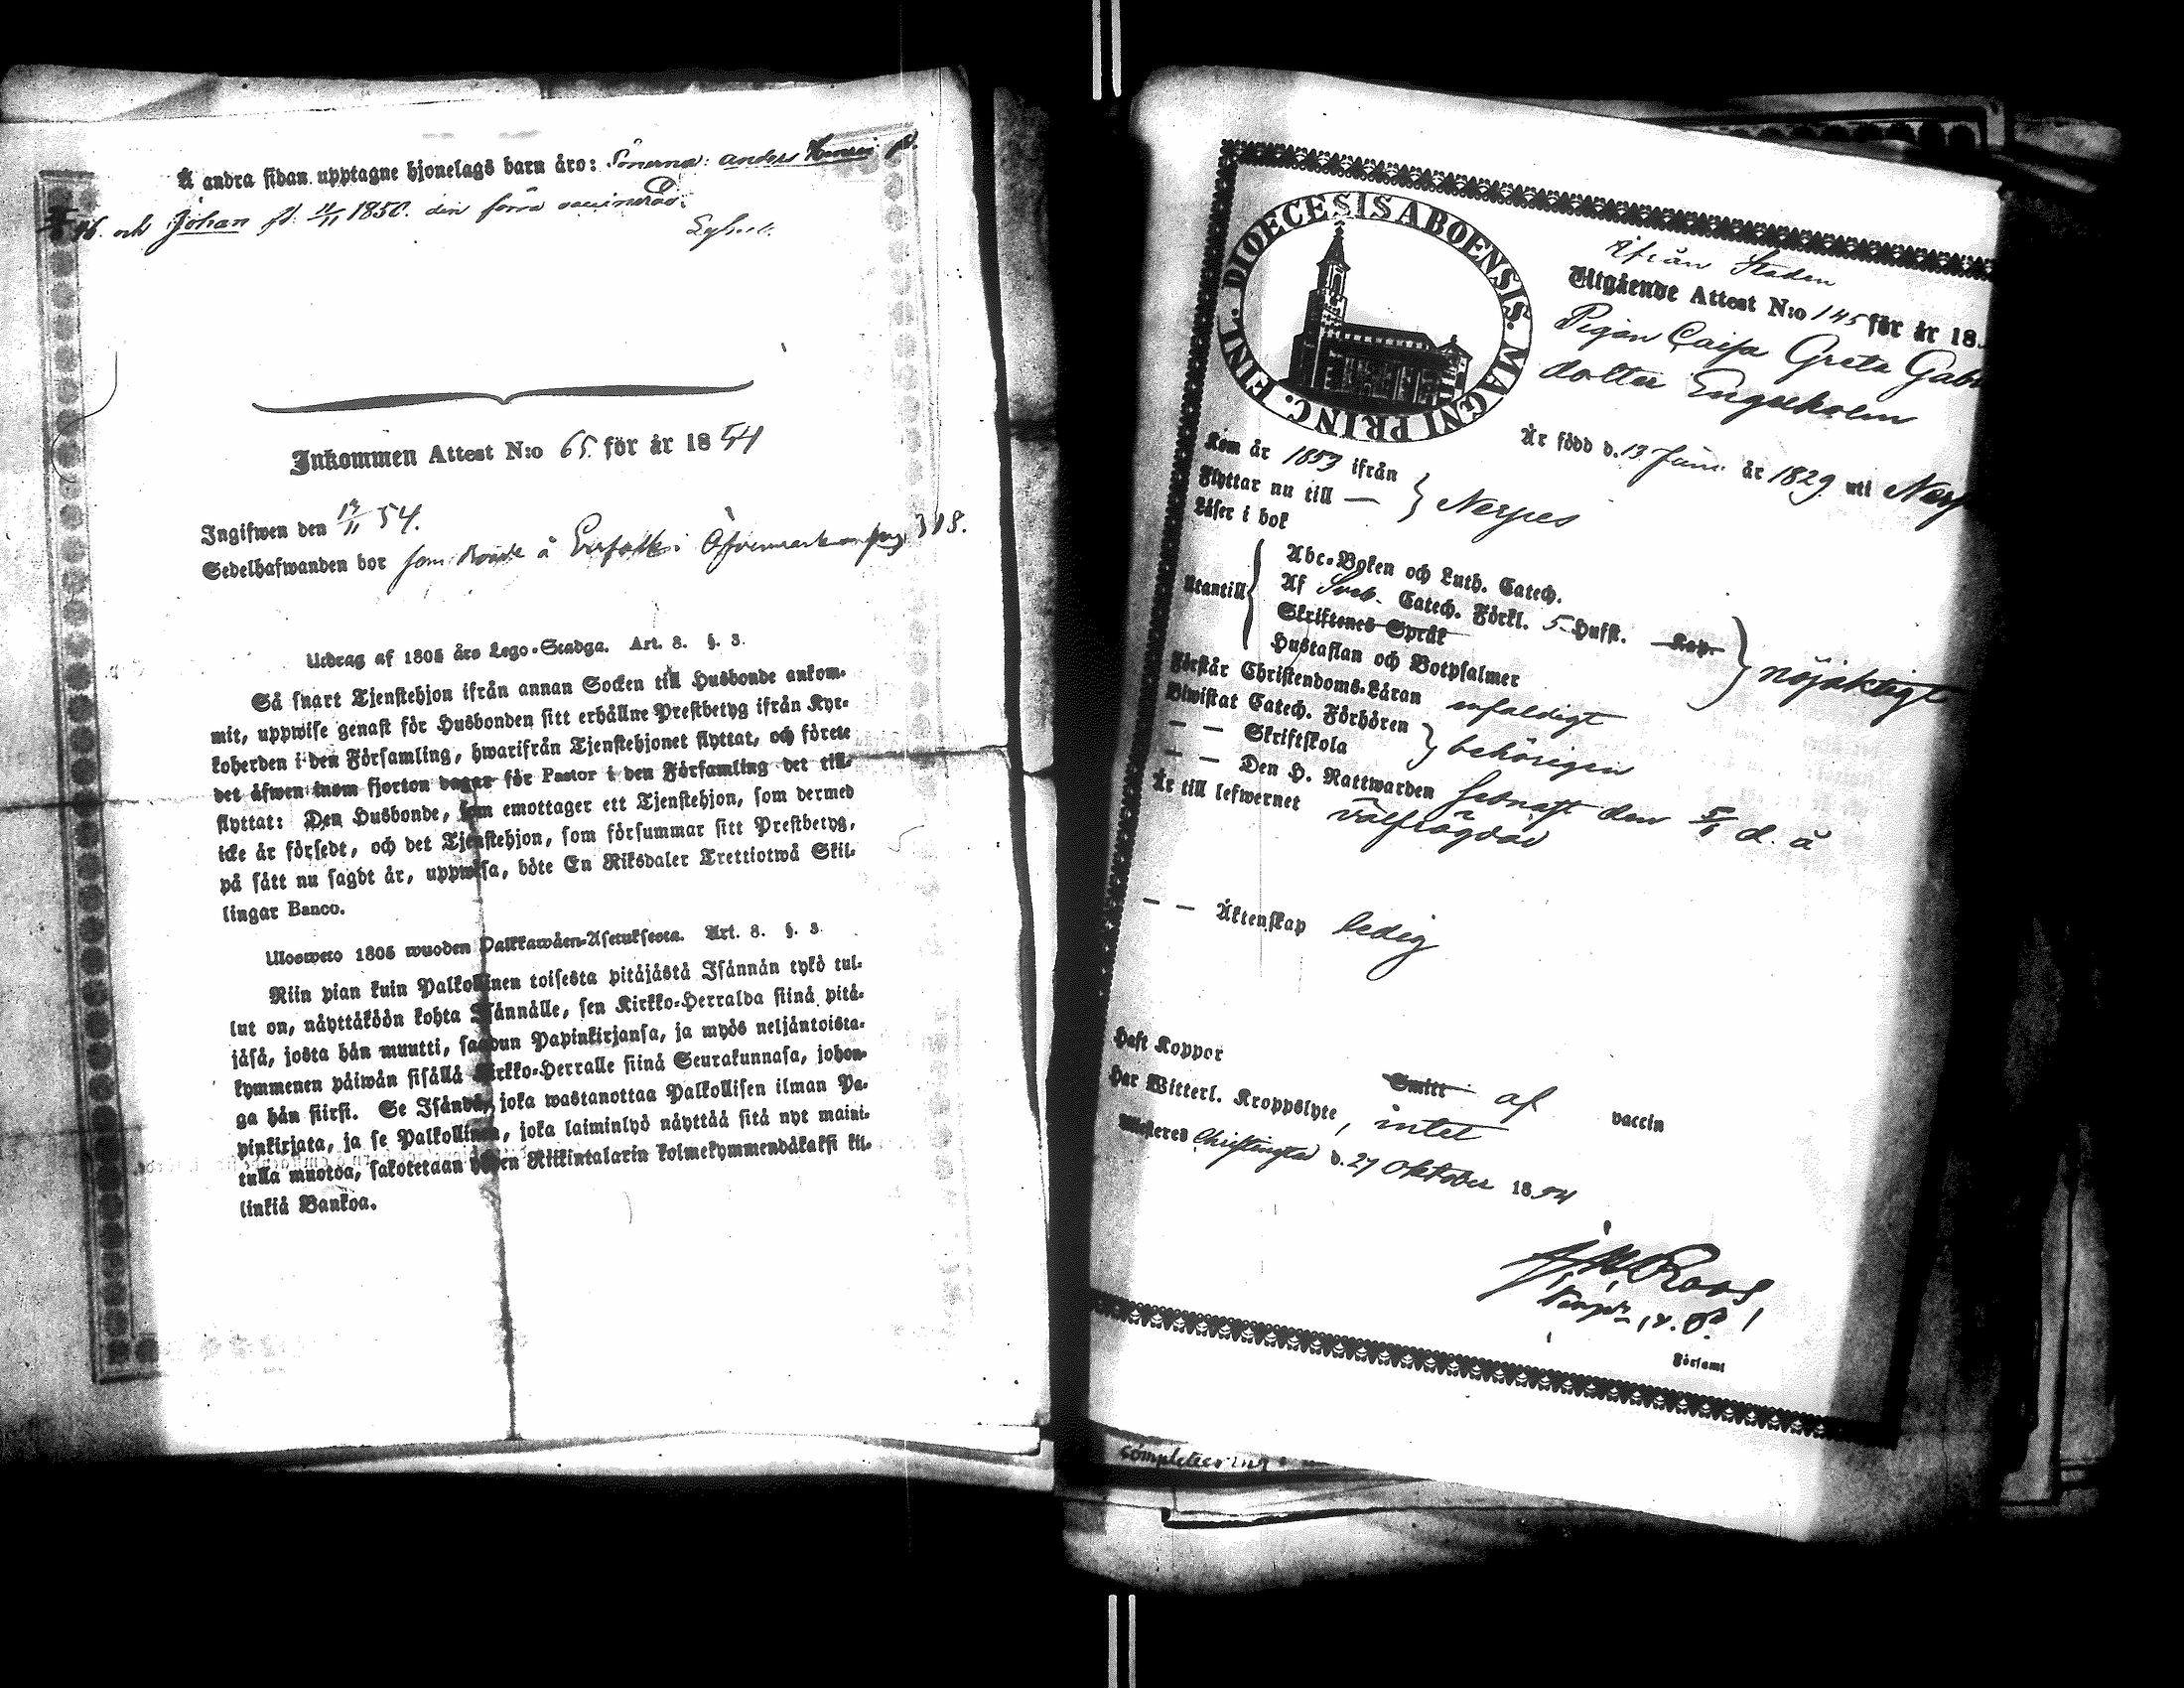 Å andra sidan upptagne hjonelags barn äro: Sönerna: Anders Henric fd.
46. och Johan fd. 11/11 1850. den förra vaccinerad.
Inkommen Attest N:o 65. för år 1854
Ingifwen den 12/11 54.
Sedelhafwanden bor som Bonde å i Öfvermark pag 318.
Utdrag af 1805 års Lego-Stadga. Art. 8. §. 3.
Så snart Tjenstehjon ifrån annan Socken till Husbonde ankom-
mit, uppwise genast för Husbonden sitt erhållne Prestbetyg ifrån Kyr-
koherden i den Församling, hwarifrån Tjenstehjonet flyttat, och förete
det äfwen inom fjorton dagar för Pastor i den Församling det till-
flyttat: Den Husbonde, som emottager ett Tjenstehjon, som dermed
icke är försedt, och det Tjenstehjon, som försummar sitt Prestbetyg,
på sätt nu sagdt är, uppwisa, böte En Riksdaler Trettiotwå Skil-
lingar Banco.
Ulosweto 1805 wuoden Palkkawäen-Asetuksesta. Art. 8. §. 3.
Niin pian kuin Palkollinen toisesta pitäjästä Isännän tykö tul-
lut on, näyttäköön kohta Isännälle, sen Kirkko-Herralda siinä pitä-
jäsä, josta hän muutti, saadun Papinkirjansa, ja myös neljäntoista-
kymmenen päiwän sisällä Kirkko-Herralle siinä Seurakunnasa, johon-
ga hän siirsi. Se Isändä, joka wastanottaa Palkollisen ilman Pa-
pinkirjata, ja se Palkollinen, joka laiminlyö näyttää sitä nyt maini-
tulla muotoa, sakotetaan yhden Riikintalarin kolmekymmendäkaksi kil-
linkiä Bankoa.
DIOECESIS ABOENSIS. MAGNI PRINC. FINL.
Ifrån Staden
Utgående Attest N:o 145 för år 18
Pigan Caisa Greta Gab
dotter Engelholm
Är född d. 13 Juni år 1829 uti Nerp
Kom år 1853 ifrån
Flyttar nu till — } Nerpes
Läser i bok
Abc-Boken och Luth. Catech.
Utantill Af Sveb. Catech. Förkl. 5 Hufst. Kap.
Skriftenes Språk
Hustaflan och Botpsalmer
nöjaktigt
Förstår Christendoms-Läran enfaldigt
Biwistat Catech. Förhören
— — Skriftskola } behörigen
— — Den H. Nattwarden sednast den 5/6 d. å
Är till lefwernet välfrägdad
— — Äktenskap ledig
Haft Koppor Smitt af vaccin
Har Witterl. Kroppslyte, intet
Attesteres Christinestad d. 27 Oktober 1854
Roos
Församl
completering